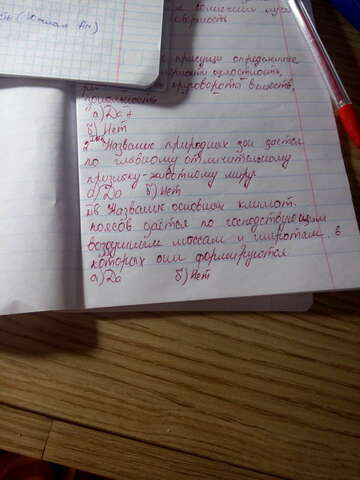 (Южная Ам)
присущи определённые
целостность,
круговорота веществ,
зональность
а) Да +
б) Нет
Название природных зон даётся
по главному отличительному
признаку - животному миру
а) Да б) Нет
Название основных климат.
поясов даётся по господствующим
воздушным массам и широтам, в
которых они формируются
а) Да б) Нет